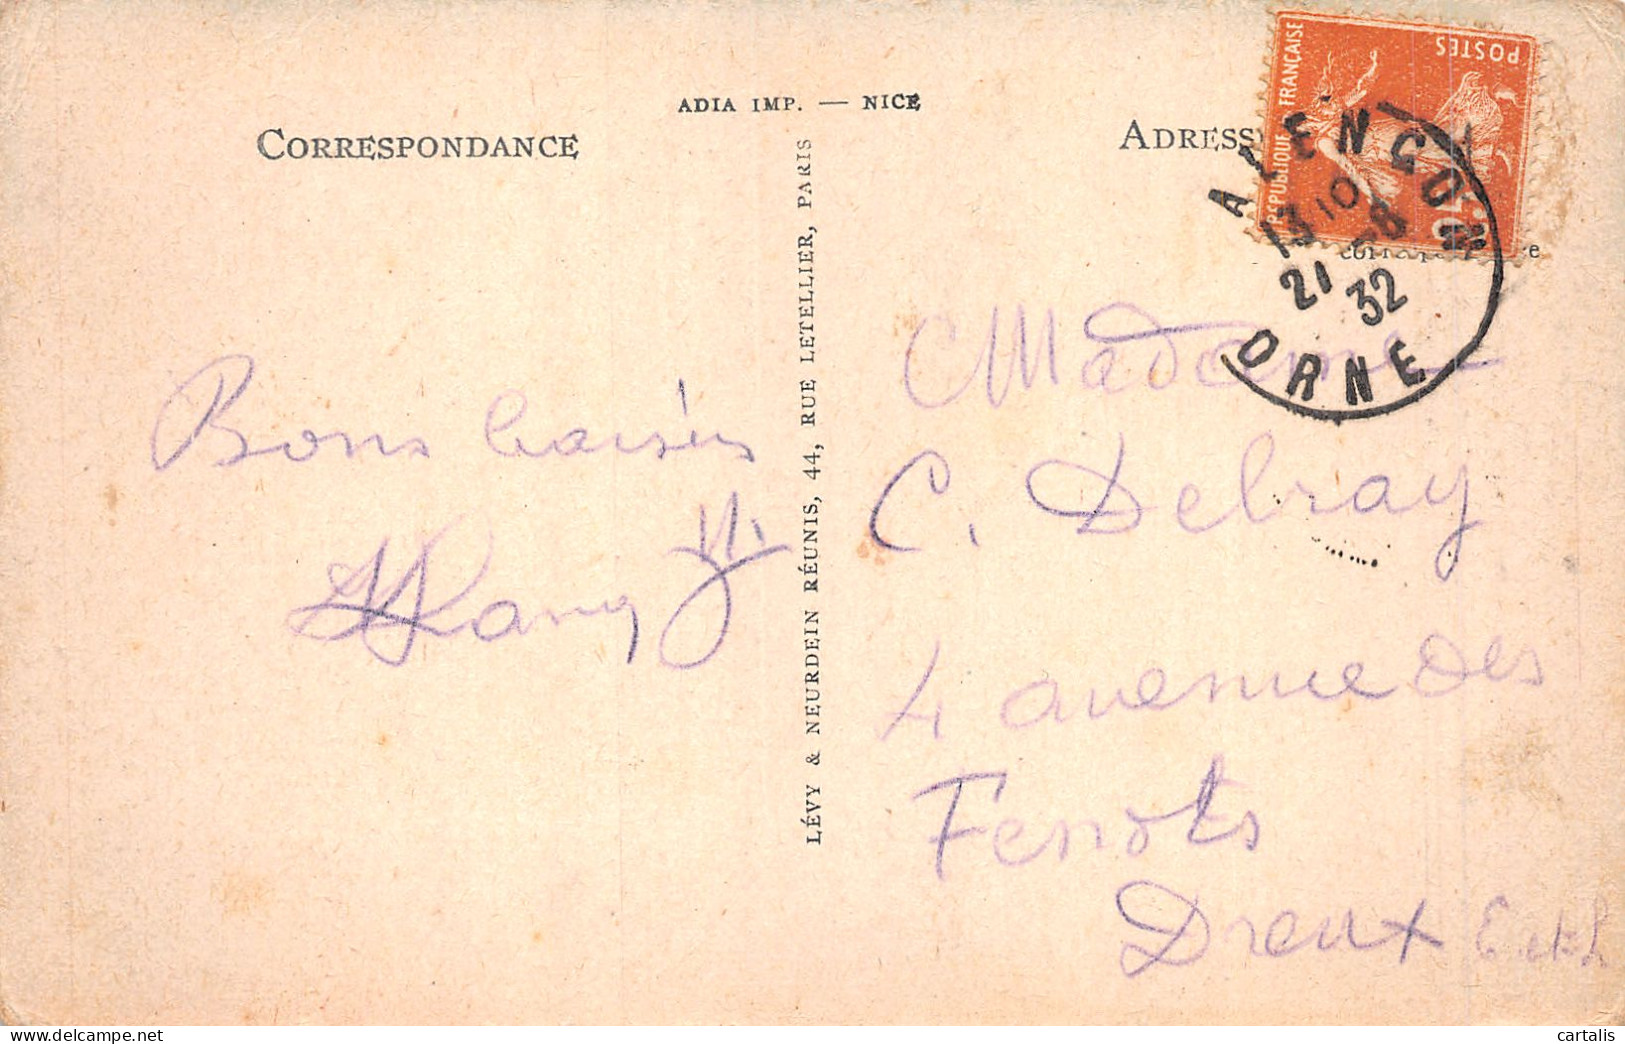 ADIA IMP. — NICE
CORRESPONDANCE
ADRESS
RÉPUBLIQUE FRANÇAISE
POSTES
ALENÇON
13 10
21 -8
32
ORNE
LÉVY & NEURDEIN RÉUNIS, 44, RUE LETELLIER, PARIS
Bons baisers
Madame
C. Delray
4 avenue des
Fenots
Dreux E et L
cartalis